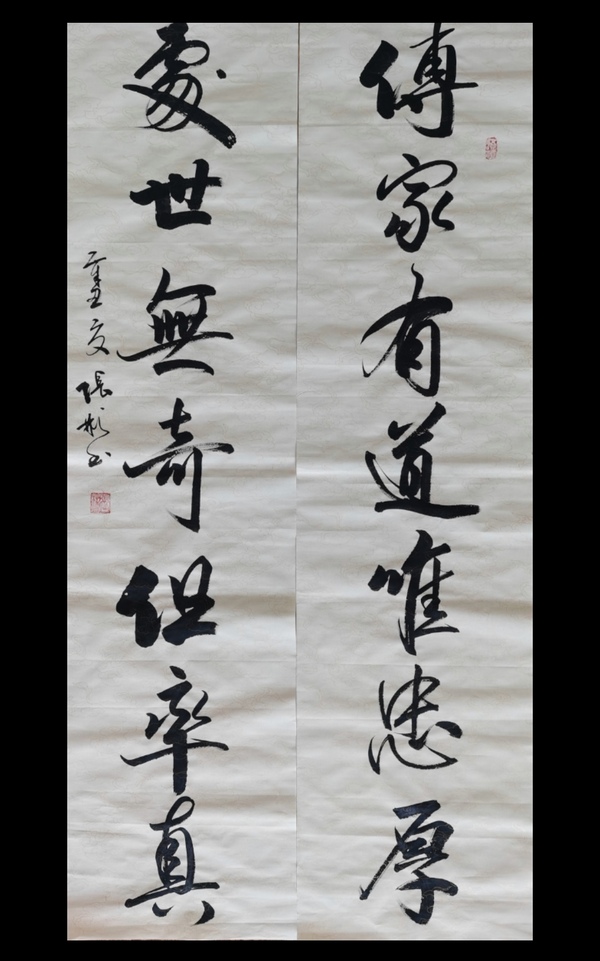 傳家有道唯忠厚
處世無奇但率真
張彬书